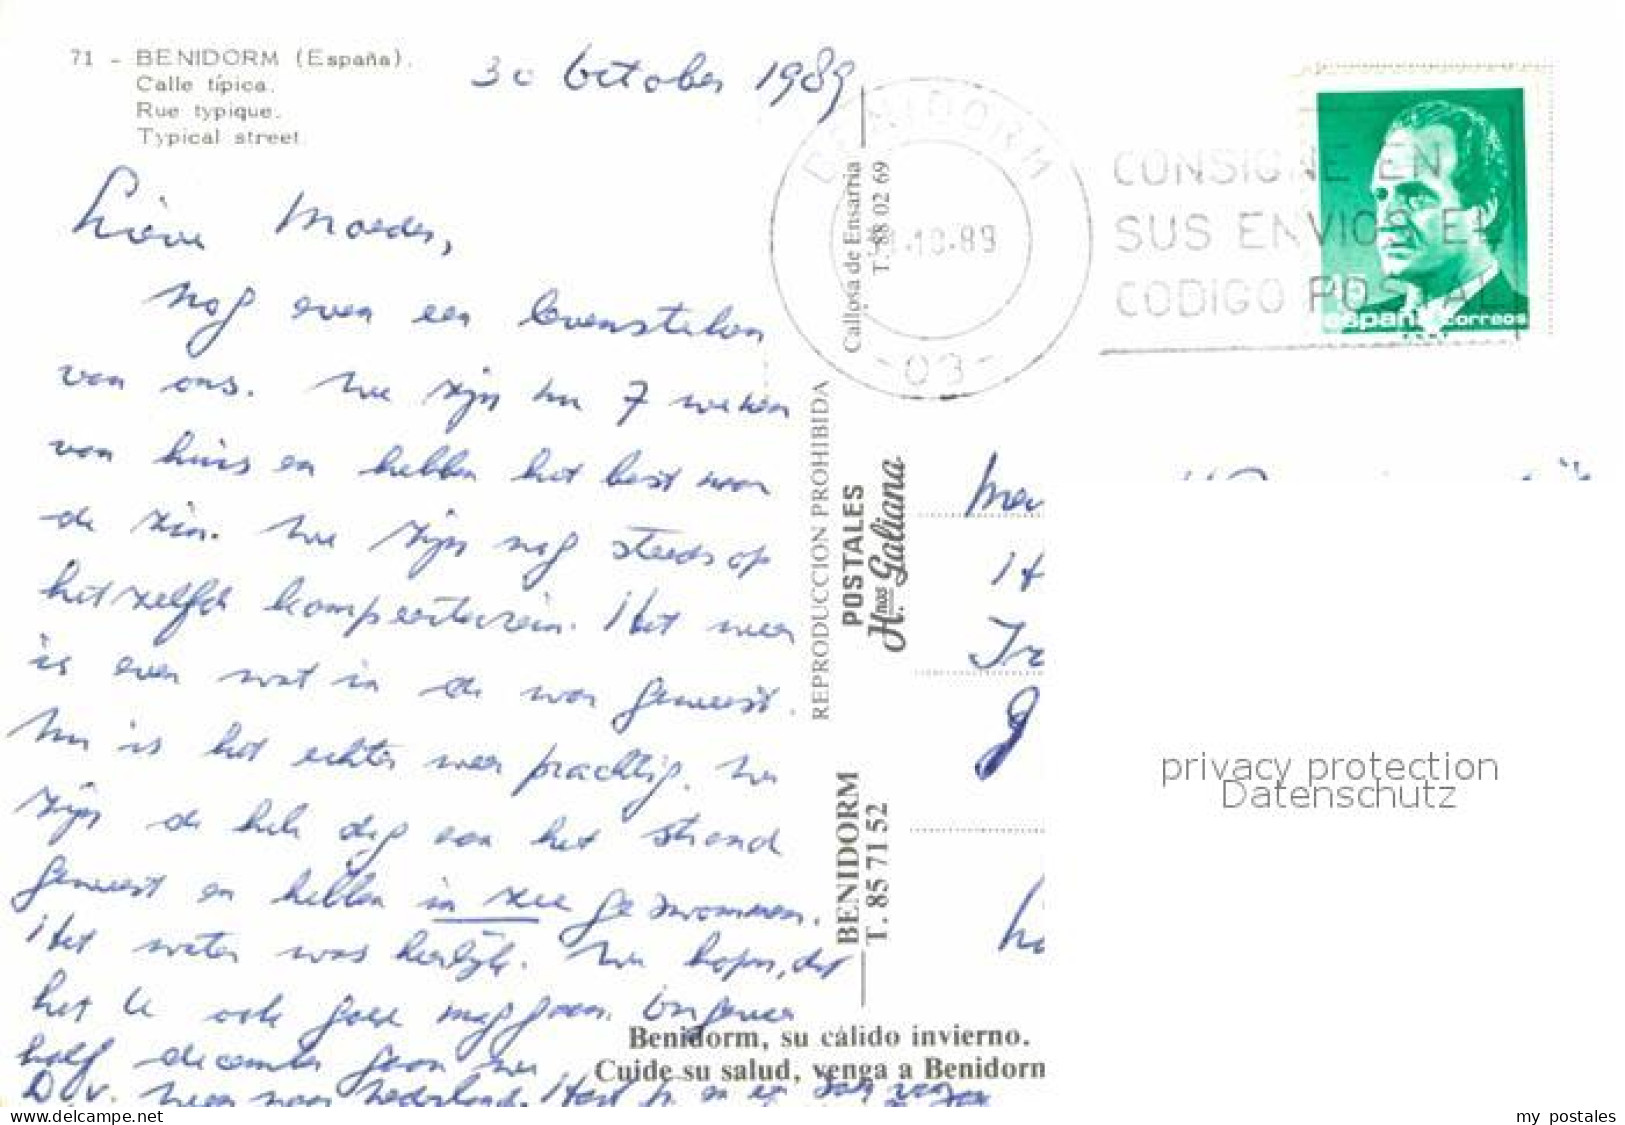 71 - BENIDORM (España).
Calle típica.
Rue typique.
Typical street
30 October 1989
Lieve Moeder,
nog even een levensteken
van ons. We zijn nu 7 weken
van huis en hebben het best naar
de zin. We zijn nog steeds op
het zelfde kampeerterrein. Het weer
is even wat in de war geweest.
Nu is het echter weer prachtig. We
zijn de hele dag aan het strand
geweest en hebben in zee gezwommen.
Het water was heerlijk. We hopen, dat
het U ook goed mag gaan. Ongeveer
half december gaan we
D.V. weer naar Nederland. Hart
BENIDORM
-10-89
- 03 -
CONSIGNE EN
SUS ENVIOS EL
CODIGO POSTAL
españa correos
Callosa de Ensarria
T. 88 02 69
REPRODUCCION PROHIBIDA
POSTALES
Hnos. Galiana
BENIDORM
T. 85 71 52
Benidorm, su cálido invierno.
Cuide su salud, venga a Benidorm
privacy protection
Datenschutz
www.delcampe.net
my postales